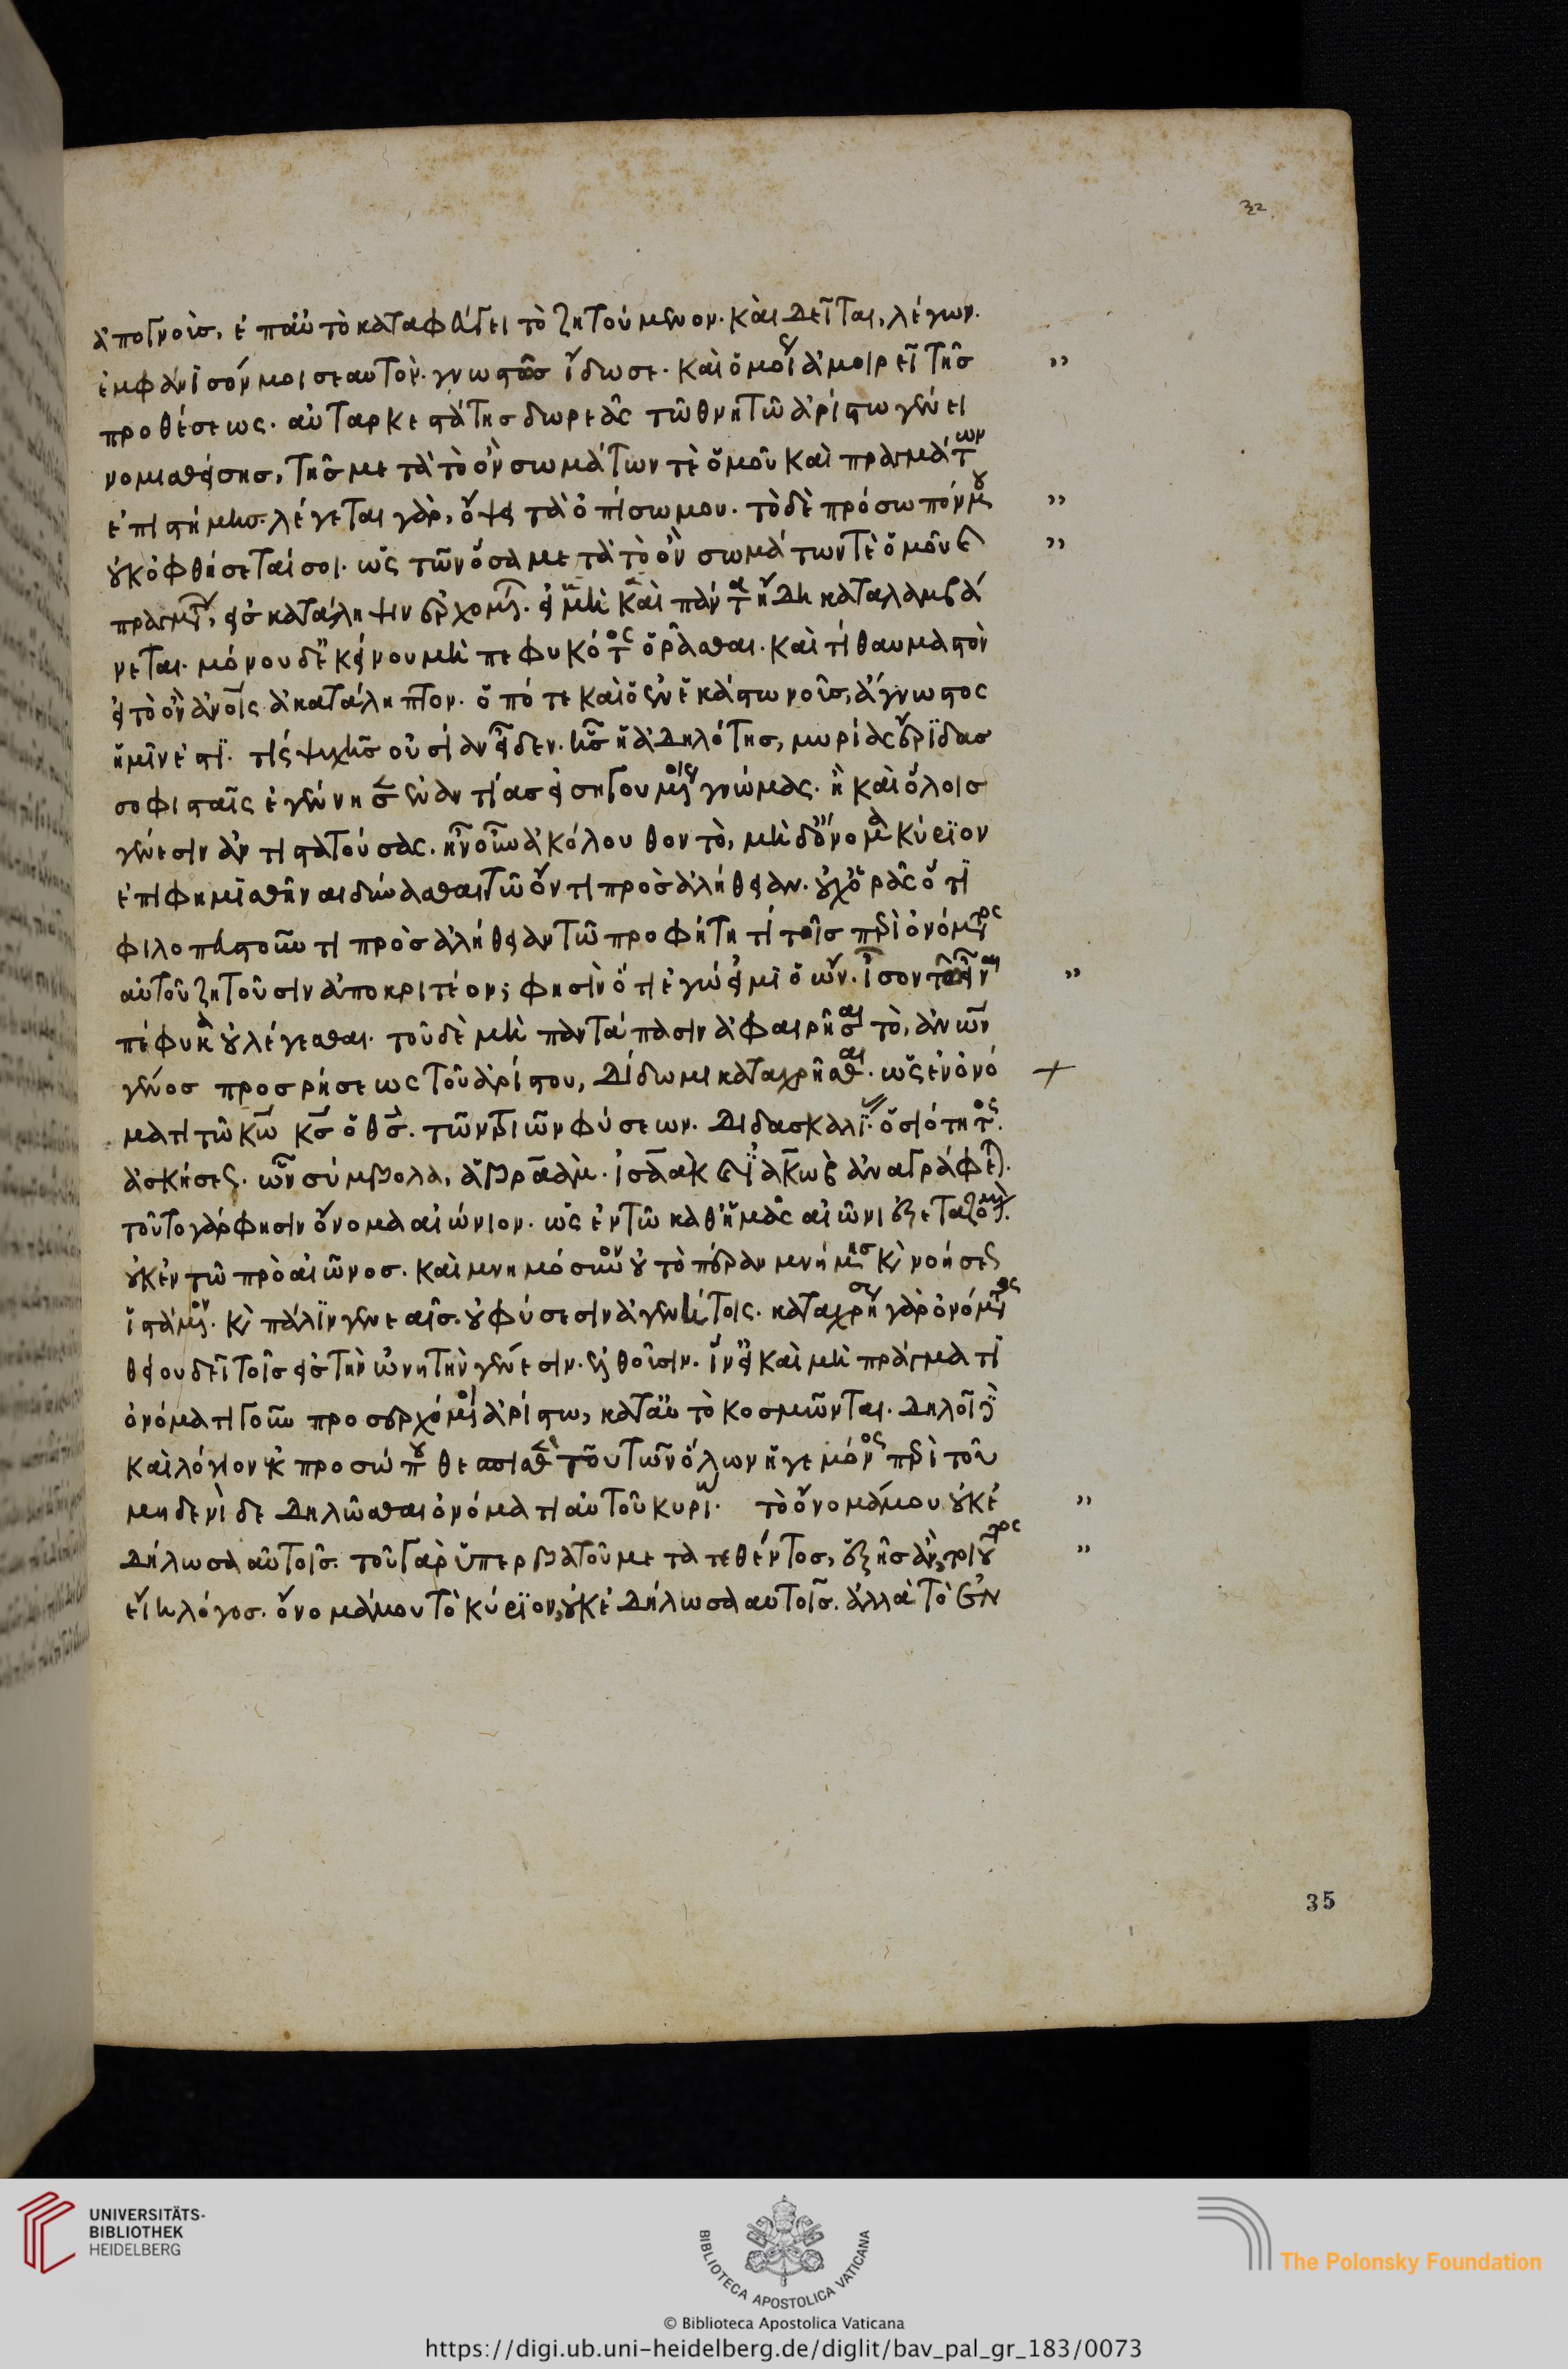 32
ἀπογνοὺσ, ἐπ' αὐτὸ καταφεύγει τὸ ζητούμενον. καὶ δεῖται, λέγων.
ἐμφάνισόν μοι σεαυτὸν. γνωστῶσ ἴδω σε. καὶ ὅμως ἀμοιρεῖ τῆσ
προθέσεως. αὐταρκεστάτησ δωρεᾶς τῶ θνητῶ ἀρίστω γένει
νομισθείσησ, τῆσ μετὰ τὸ ὂν σωμάτων τὲ ὁμοῦ καὶ πραγμάτων
ἐπιστήμησ. λέγεται γὰρ, ὄψει τὰ ὀπίσω μου. τὸ δὲ πρόσωπόν μου
οὐκ ὀφθήσεταί σοι. ὡς τῶν ὅσα μετὰ τὸ ὂν σωμάτων τὲ ὁμοῦ καὶ
πραγμάτων, εἰσ κατάληψιν ἐρχομένων. εἰ μὴ καὶ πάντα ἤδη καταλαμβά
νεται. μόνου δὲ κείνου μὴ πεφυκότος ὁρᾶσθαι. καὶ τί θαυμαστὸν
εἰ τὸ ὂν ἀνοις ἀκατάληπτον. ὁπότε καὶ ὁ ἐν ἑκάστω νοῦσ, ἄγνωστος
ἡμῖν ἐστί. τίς ψυχῆσ οὐσίαν εἶδεν. ἧσ ἡ ἀδηλότησ, μυρίας ἔριδασ
σοφισταῖς ἐγέννησεν ἐναντίασ εἰσηγουμένοις γνώμας. ἢ καὶ ὅλοισ
γένεσιν ἀντιστατούσας. ἦν οὖν ἀκόλουθον τὸ, μὴδ' ὄνομα κύριον
ἐπιφημισθῆναι δύνασθαι τῶ ὄντι πρὸσ ἀλήθειαν. οὐχ ὁρᾶς ὅτι
φιλοπευστοῦντι πρὸσ ἀλήθειαν τῶ προφήτη τί τοῖσ περὶ ὀνόματος
αὐτοῦ ζητοῦσιν ἀποκριτέον; φησὶν ὅτι ἐγώ εἰμι ὁ ὤν. ἴσον τῶ εἶναι
πέφυκα οὐ λέγεσθαι. τοῦ δὲ μὴ παντάπασιν ἀφαιρῆσαι τὸ, ἀνων
γένοσ προσρήσεως τοῦ ἀρίστου, δίδωμι καταχρῆσθαι. ὡς ἐν ὀνό
ματι τῶ κω κσ ὁ θσ. τῶν τριῶν φύσεων. διδασκαλίας. ὁσιότητος.
ἀσκήσεως. ὧν σύμβολα, ἀβραὰμ. ἰσαὰκ καὶ ἰακὼβ ἀναγράφεται.
τοῦτο γάρ φησιν ὄνομα αἰώνιον. ὡς ἐν τῶ καθ' ἡμᾶς αἰῶνι ἐξεταζόμενον.
οὐκ ἐν τῶ πρὸ αἰῶνοσ. καὶ μνημόσυνον οὐ τὸ πέραν μνήμησ καὶ νοήσεως
ἱστάμενον. καὶ πάλιν γενεαῖσ. οὐ φύσεσιν ἀγενήτοις. καταχρήσεως γὰρ ὀνόματος
θείου δεῖ τοῖσ εἰσ τὴν θνητὴν γένεσιν. ἐλθοῦσιν. ἵν' εἰ καὶ μὴ πράγματι
ὀνόματι γοῦν προσερχόμενοι ἀρίστω, κατ' αὐτὸ κοσμῶνται. δηλοῖ δὲ
καὶ λόγιον ἐκ προσώπου θεσπισθὲν τοῦ τῶν ὅλων ἡγεμόνος περὶ τοῦ
μηδενὶ δεδηλῶσθαι ὀνόματι αὐτοῦ κυρίω. τὸ ὄνομά μου οὐκ ἐ
δήλωσα αὐτοῖσ. τοῦ γὰρ ὑπερβατοῦ μετατεθέντοσ, ἑξῆσ ἂν τοιοῦτος
εἴη λόγοσ. ὄνομά μου τὸ κύριον, οὐκ ἐδήλωσα αὐτοῖσ. ἀλλὰ τὸ ἐν
35
UNIVERSITÄTS-
BIBLIOTHEK
HEIDELBERG
BIBLIOTECA APOSTOLICA VATICANA
The Polonsky Foundation
© Biblioteca Apostolica Vaticana
https://digi.ub.uni-heidelberg.de/diglit/bav_pal_gr_183/0073